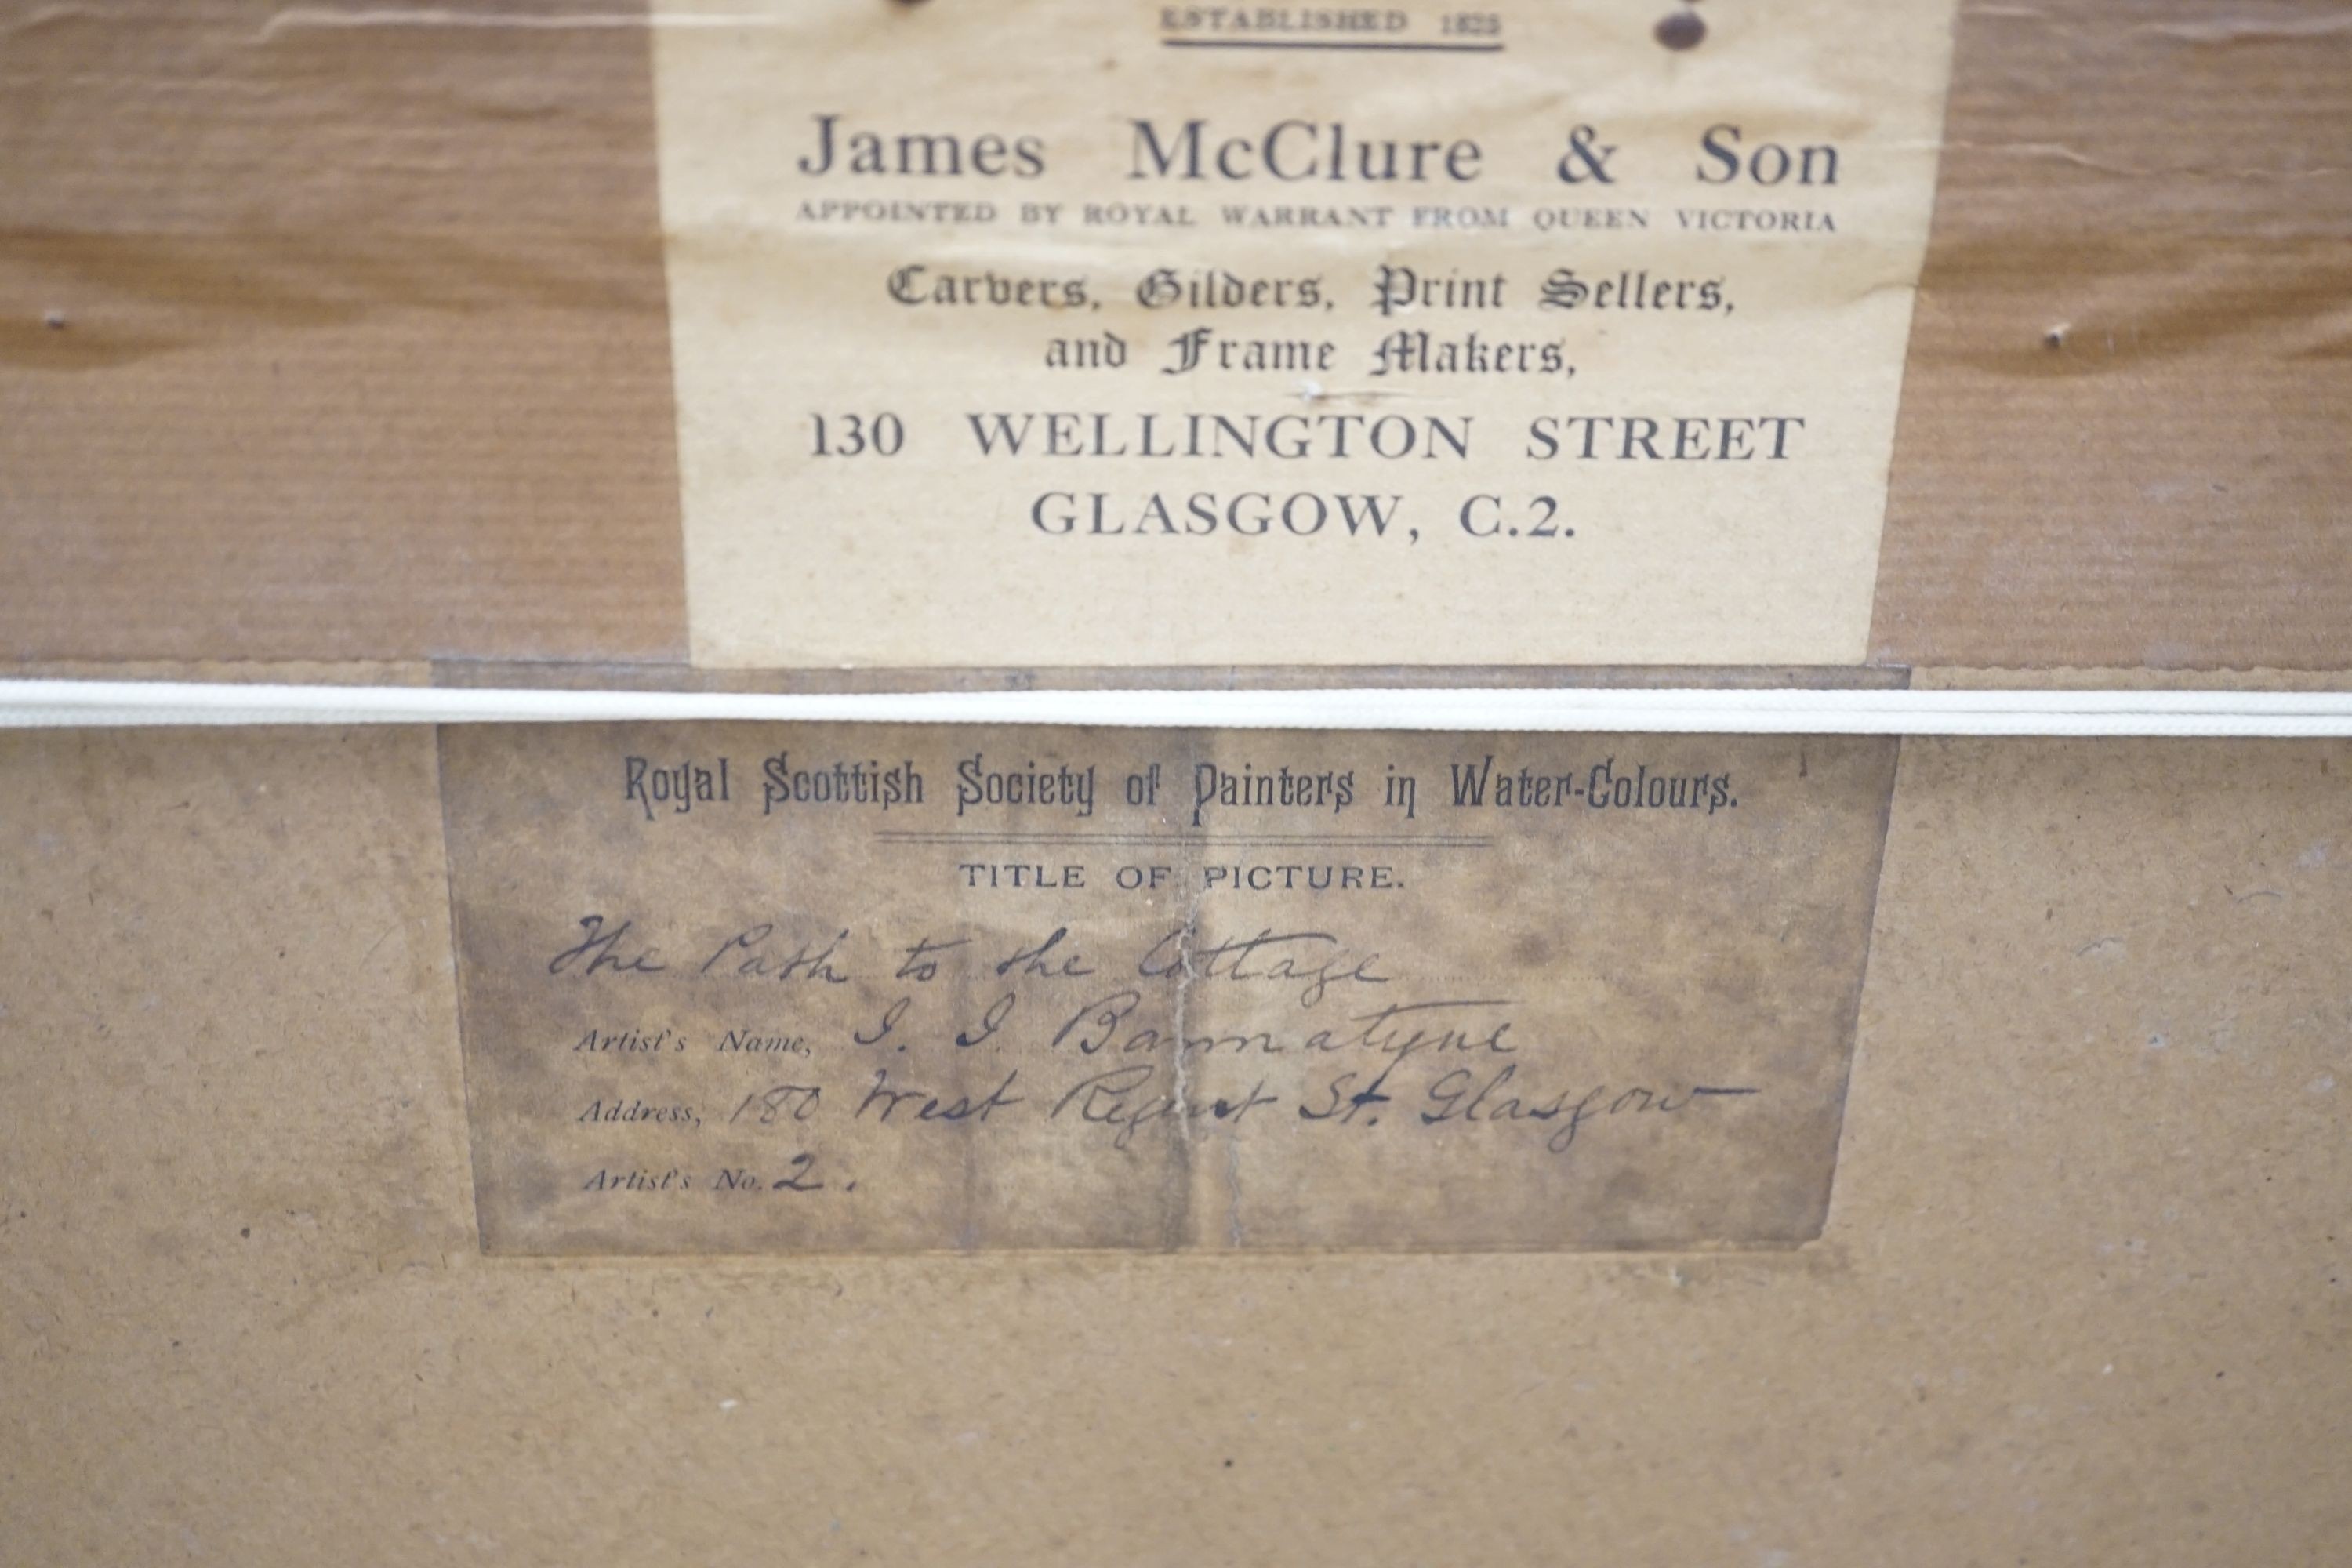 ESTABLISHED 1825
James McClure & Son
APPOINTED BY ROYAL WARRANT FROM QUEEN VICTORIA
Carvers, Gilders, Print Sellers,
and Frame Makers,
130 WELLINGTON STREET
GLASGOW, C.2.
Royal Scottish Society of Painters in Water-Colours.
TITLE OF PICTURE.
The Path to the Cottage
Artist's Name, J. J. Bannatyne
Address, 180 West Regent St. Glasgow
Artist's No. 2.